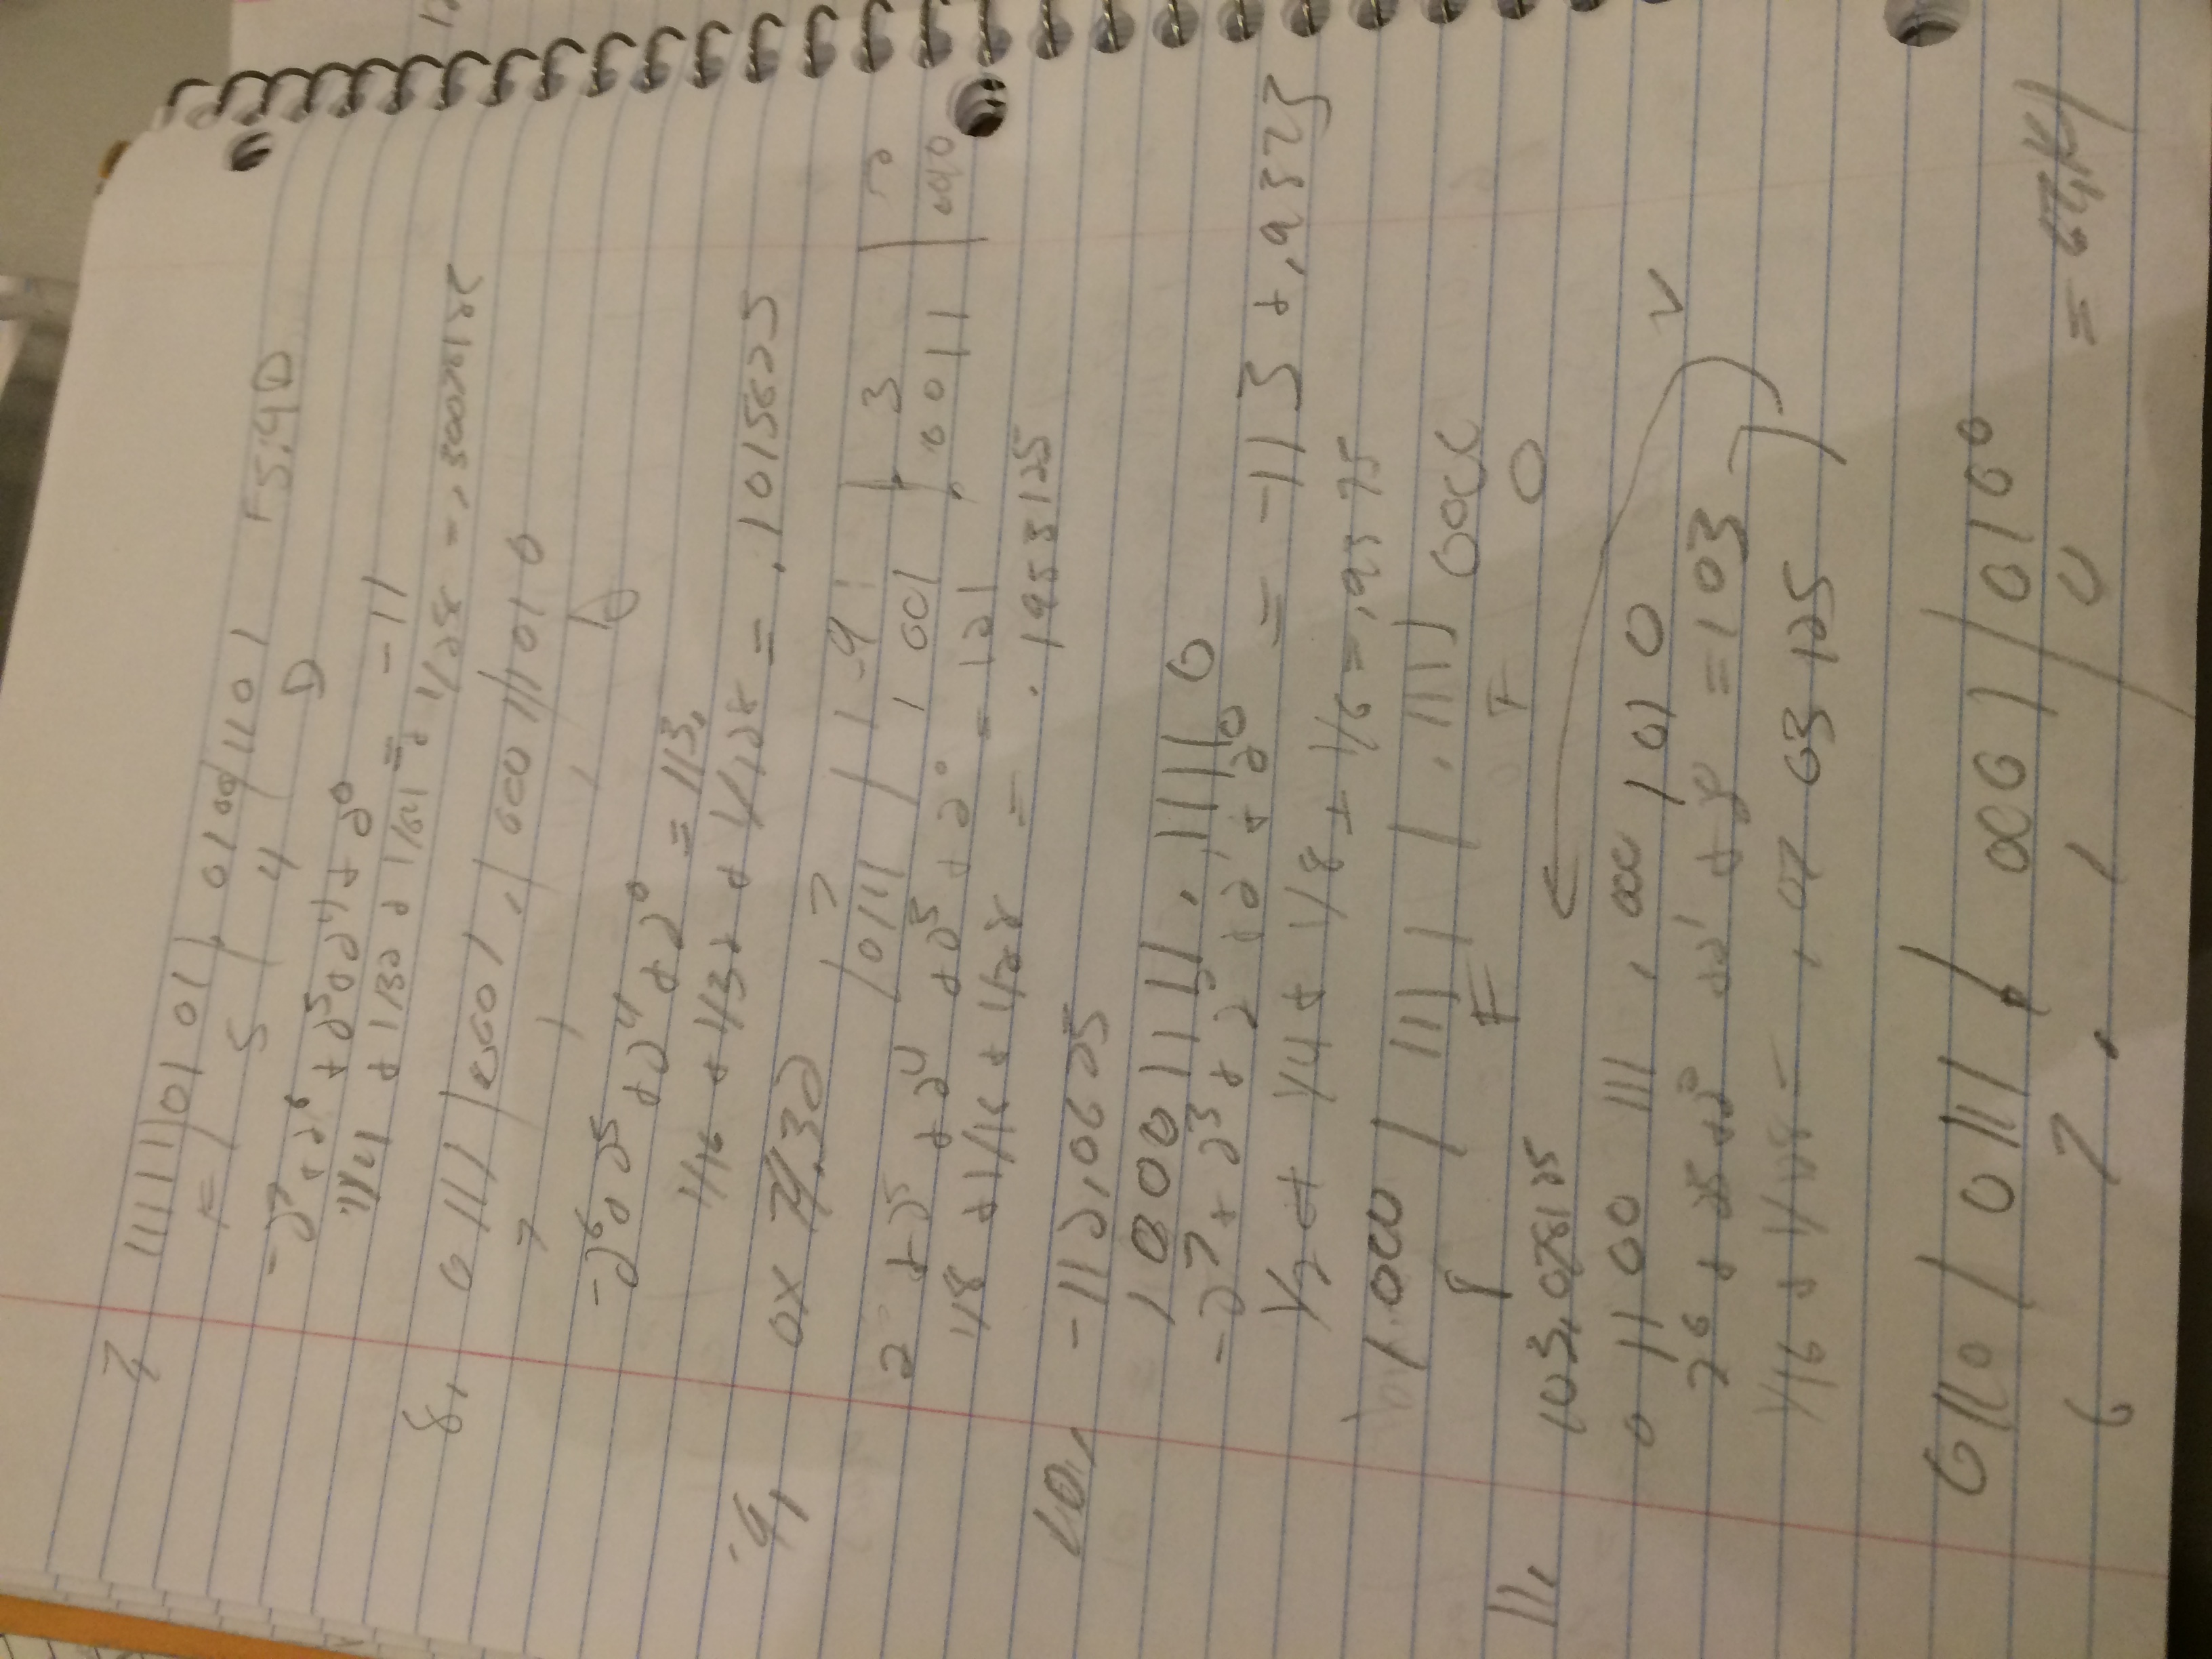 7. 11111|0101|. 0100|1101 F5.4D
F | 5 | 4 | D
-2^7 + 2^6 + 2^5 + 2^4 + 2^0 = -11
1/4 + 1/32 + 1/64 + 1/128 = .30078125
8. 0111|0001.|0001|1010
7 1 1
-2^6 + 2^5 + 2^4 + 2^0 = 113.
1/16 + 1/32 + 1/128 = .1015625
9. 0x 79.32 | 7 | 9 | 3 | 2
|0111| 1001 . 0011 | 0010
2 + 2^5 + 2^4 + 2^3 + 2^0 = 121
1/8 + 1/16 + 1/128 = .1953125
10. -112.0625
10001111.11110
-2^7 + 2^3 + 2^2 + 2^1 + 2^0 = -113 + .9375
1/2 + 1/4 + 1/8 + 1/6 = .9375
1000 | 1111 | .1111 0000
8 F F 0
11. 103.078125
0 1100 111 . 000 1010
2^6 + 2^5 + 2^1 + 2^0 = 103
1/16 + 1/128 = .07 03 125
0110 | 0111 . 0001 | 0100
6 7 . 1 4